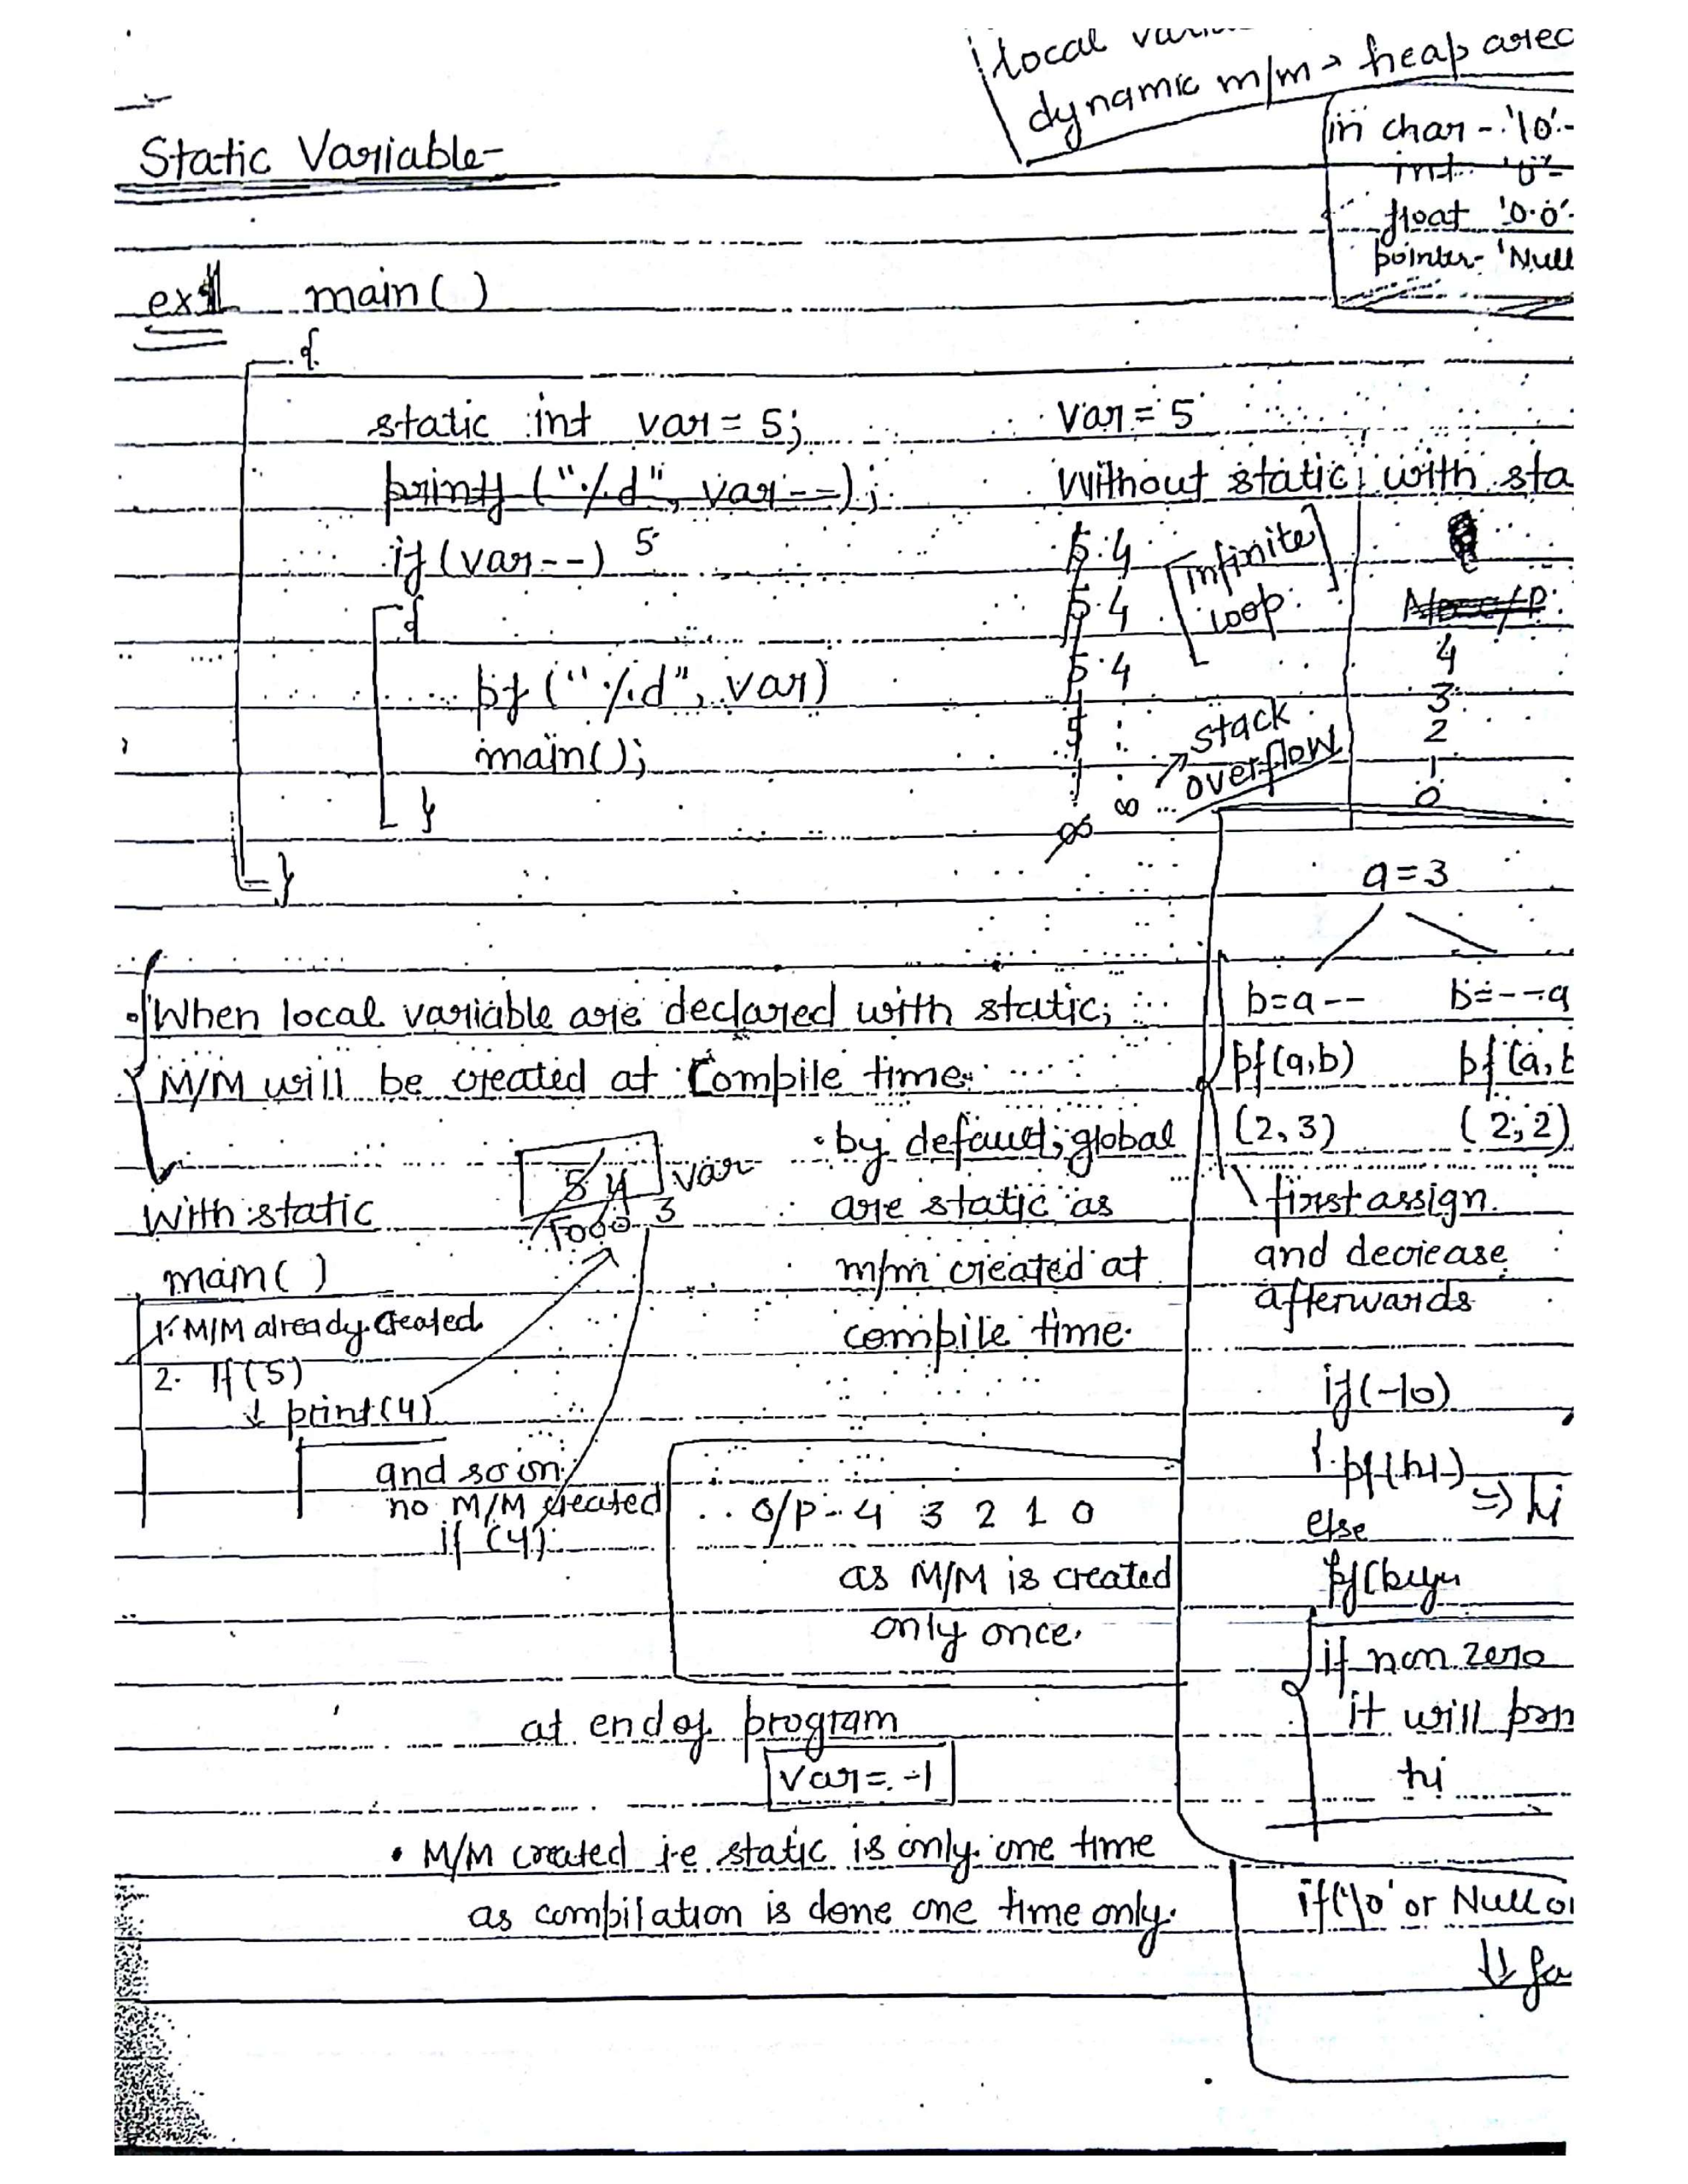 local
dynamic m/m → heap area
in char - '\0' -
int '0' -
float '0.0' -
pointer - 'Null
Static Variable -
ex 1 main( )
{
static int var = 5;
printf ("%d", var--);
if (var--) 5
{
pf ("%d", var)
main();
}
}
Var = 5
Without static
5 4
5 4
5 4
5 :
∞ ∞
[infinite loop]
→ stack overflow
with sta
4
3
2
1
0
• When local variable are declared with static,
M/M will be created at Compile time.
With static
5 4 3 var
1000
main( )
1. M/M already created
2. If (5)
↓ print(4)
and so on
no M/M created
if (4)
• by default, global
are static as
m/m created at
compile time.
O/P - 4 3 2 1 0
as M/M is created
only once.
at end of program
var = -1
• M/M created i.e static is only one time
as compilation is done one time only.
a = 3
b=a-- b=--a
pf(a,b) pf(a,b
(2,3) (2,2)
first assign
and decrease
afterwards
if(-10)
{ pf(hi) ⇒ hi
else
if non zero
it will prin
hi
if('\0' or Null or
↓↓ fa